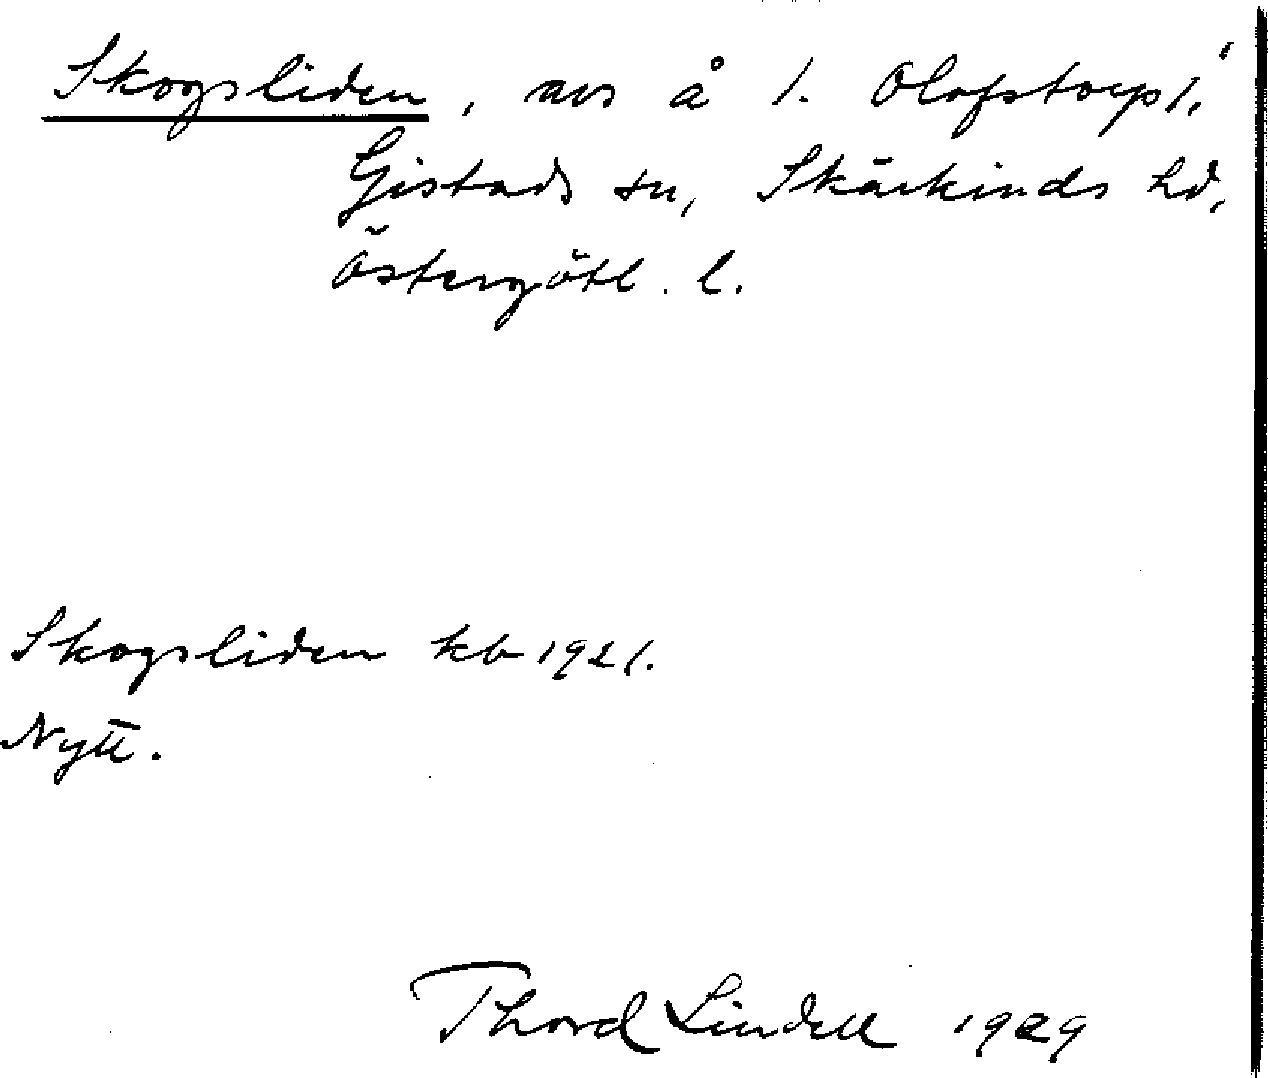 Skogsliden, avs å 1. Olofstorp 1,
Gistads sn, Skärkinds hd,
Östergötl. l.
Skogsliden kb 1921.
Nytt.
Thord Lindell 1929